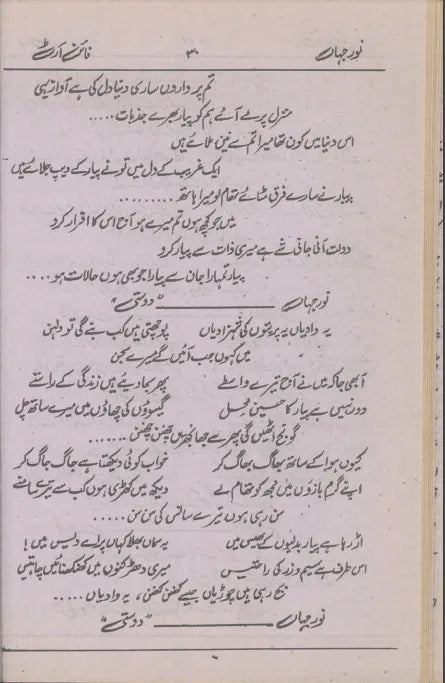 نور جہاں ۳۰ فائن آرٹ
تم پر واروں ساری دنیا دل کی ہے آواز یہی
منزل پر لے آئے ہم کو پیار بھرے جذبات.....
اس دنیا میں کون تھا میرا تم سے نین ملائے ہیں
ایک غریب کے دل میں تو نے پیار کے دیپ جلائے ہیں
پیار نے سارے فرق مٹائے تھام لو میرا ہاتھ.........
میں جو کچھ ہوں تم میرے ہو آج اس کا اقرار کرو
دولت آنی جانی شے ہے میری ذات سے پیار کرو
پیار تمہارا جان سے پیارا جو بھی ہوں حالات ہو....
نور جہاں ــــــــــ "دوستی"
یہ وادیاں یہ پربتوں کی شہزادیاں پوچھتی ہیں کب بنے گی تو دلہن
میں کہوں جب آئیں گے میرے سجن
آ بھی جا کہ میں نے آج تیرے واسطے پھر سجا دیئے ہیں زندگی کے راستے
دور نہیں ہے پیار کا حسین محل گیسوؤں کی چھاؤں میں میرے ساتھ چل
گونج اٹھیں گی پھر سے جھانجھریں چھنن چھنن.......
کیوں ہوا کے ساتھ بھاگ بھاگ کر خواب کوئی دیکھتا ہے جاگ جاگ کر
اپنے گرم بازوں میں مجھ کو تھام لے دیکھ میں کھڑی ہوں کب سے تیرے سامنے
سن رہی ہوں تیرے سانس کی سن سن.....
اڑ رہا ہے پیار بدلیوں کے بھیس میں یہ سماں بھلا کہاں پرائے دیس میں!
اس طرف ہے سیم و زر کی راحتیں میری دھڑکنوں میں کھنکھناتیں چاہتیں
بج رہی ہیں چوڑیاں جیسے کھنن کھنن، یہ وادیاں.....
نور جہاں ــــــــــ "دوستی"